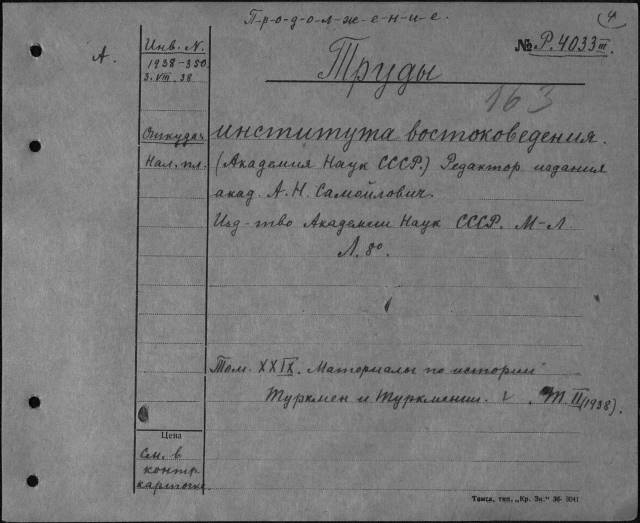 П-р-о-д-о-л-ж-е-н-и-е.
4
А.
Инв. N.
1938-350
3.VIII.38
№ Р. 4033 III.
Труды
163
Откуда
института востоковедения.
Нал. пл.
(Академия Наук СССР.) Редактор издания
акад. А. Н. Самойлович.
Изд-тво Академии Наук СССР. М-Л
Л. 8°
Том. XXIX. Материалы по истории
Туркмен и Туркмении. Т. II (1938).
Цена
См. в
контр.
карточке.
Томск, тип. „Кр. Зн." 36- 3041